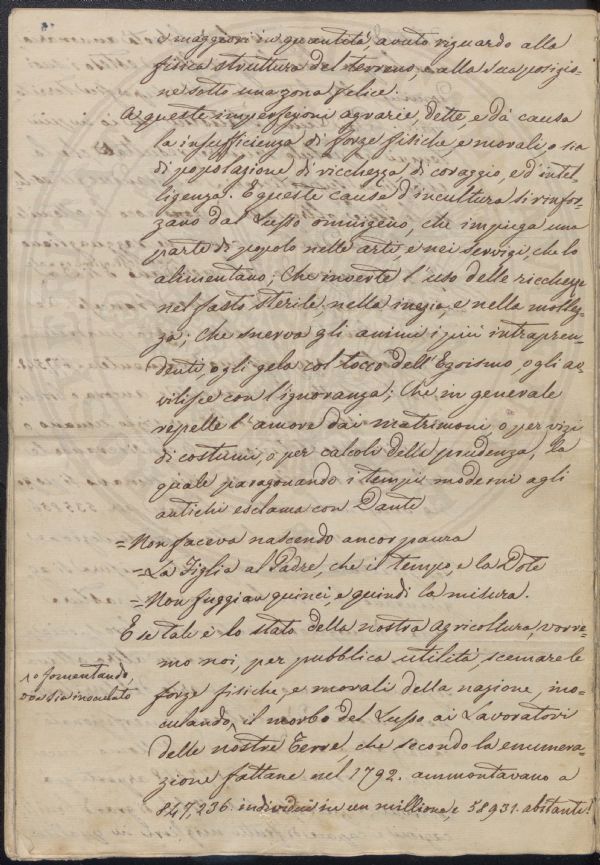 e maggiori in quantità, avuto riguardo alla
fisica struttura del terreno, e alla sua posizio-
ne sotto una zona felice.
A queste imperfezioni agrarie, dette, e dà causa
la insufficienza di forze fisiche, e morali, o sia
di popolazione, di ricchezza, di coraggio, e d'intel-
ligenza. E queste cause d'incultura si rinfor-
zano dal Lusso omnigeno, che impiega una
parte di popolo nelle arti, e nei servizi, che lo
alimentano; Che inverte l'uso delle ricchezze
nel fasto sterile, nella inezia, e nella mollez-
za; Che snerva gli animi i più intrapren-
denti, o gli gela col tocco dell'Egoismo, o gli av-
vilisce con l'ignoranza; Che in generale
repelle l'amore dai matrimoni, o per vizi
di costumi, o per calcoli della prudenza, la
quale paragonando i tempi moderni agli
antichi esclama con Dante
= Non faceva nascendo ancor paura
= La Figlia al Padre, che il tempo, e la Dote
= Non fuggian quinci, e quindi la misura.
E se tale è lo stato della nostra Agricoltura, vorre-
mo noi, per pubblica utilità, scemare le
forze fisiche, e morali della nazione, ino-
culando, il morbo del Lusso ai Lavoratori
delle nostre Terre, che secondo la enumera-
zione fattane nel 1792. ammontavano a
847,236 individui in un millione e 58931. abitanti!
o fomentando,
ove sia inoculato